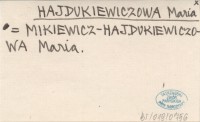 x
HAJDUKIEWICZOWA Maria
= MIKIEWICZ-HAJDUKIEWICZO-
WA Maria.